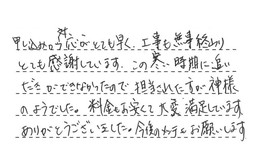 申し込みの対応がとても早く、工事も無事終わり
とても感謝しています。この寒い時間に追い
だきができなかったので担当された方が神様
のようでした。料金も安くて大変満足しています
ありがとうございました。今後のメンテもお願いします